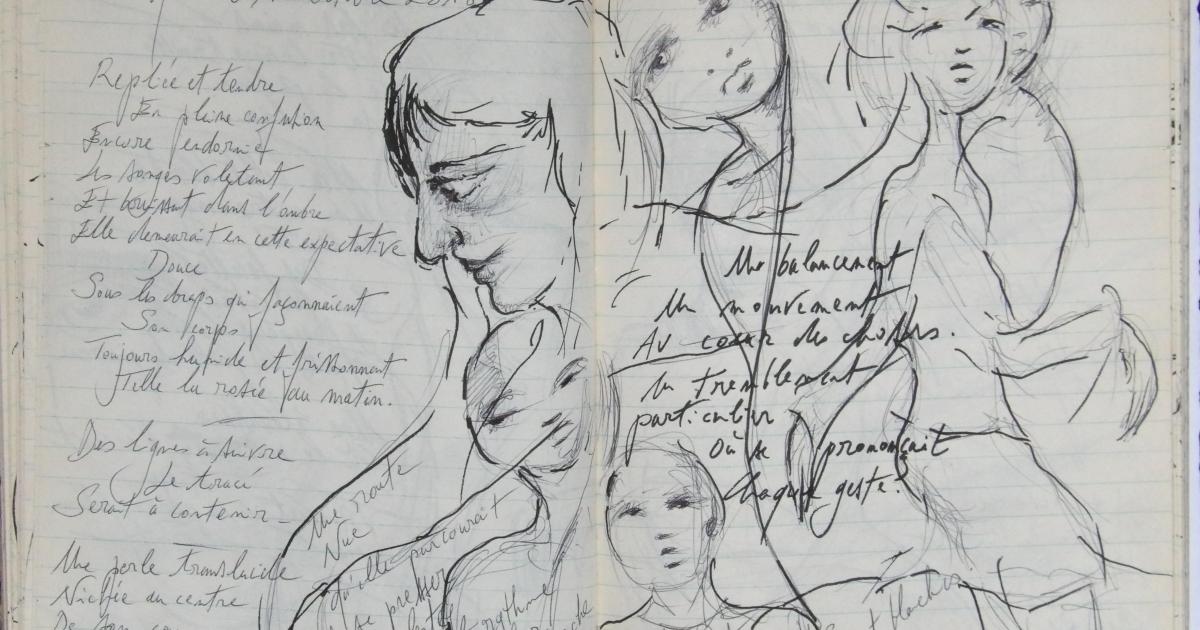 Repliée et tendre
En pleine confusion
Encore endormie
Les songes voletant
Et bruissant dans l'ombre
Elle demeurait en cette expectative
Douce
Sous les draps qui façonnaient
Son corps
Toujours humide et frissonnant
Telle la rosée du matin.
Des lignes à suivre
Le tracé
Serait à contenir
Une perle translucide
Nichée au centre
De son
Une route
Nue
qu'elle parcourait
se presser
rythme
Un balancement
Un mouvement
Au cœur des choses.
Un tremblement
particulier
Où se prononçait
Chaque geste.